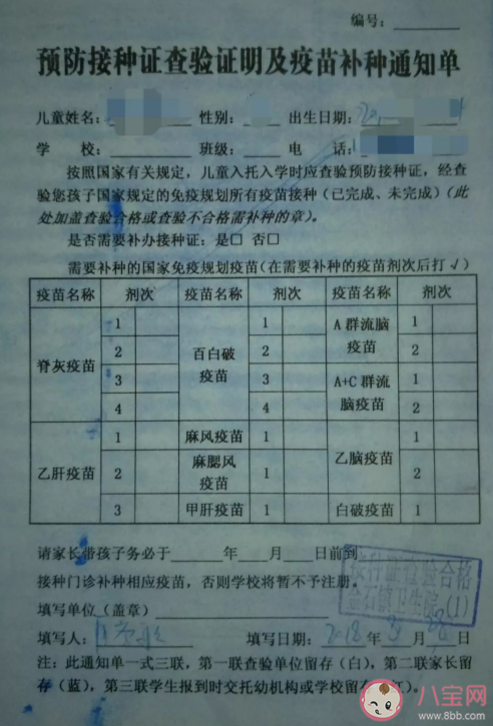 编号:
预防接种证查验证明及疫苗补种通知单
儿童姓名: 性别: 出生日期:
学 校: 班级: 电 话:
按照国家有关规定，儿童入托入学时应查验预防接种证，经查
验您孩子国家规定的免疫规划所有疫苗接种（已完成、未完成）（此
处加盖查验合格或查验不合格需补种的章）。
是否需要补办接种证：是□ 否□
需要补种的国家免疫规划疫苗（在需要补种的疫苗剂次后打√）
疫苗名称 剂次 疫苗名称 剂次 疫苗名称 剂次
脊灰疫苗 1 2 3 4
百白破疫苗 1 2 3 4
A 群流脑疫苗 1 2
A+C 群流脑疫苗 1 2
乙肝疫苗 1 2 3
麻风疫苗 1
麻腮风疫苗 1
甲肝疫苗 1
乙脑疫苗 1 2
白破疫苗 1
请家长带孩子务必于 年 月 日前到
接种门诊补种相应疫苗，否则学校将暂不予注册。
接种证查验合格
金石镇卫生院(1)
填写单位（盖章）
填写人： 填写日期：2018年 月 日
注：此通知单一式三联，第一联查验单位留存（白），第二联家长留
存（蓝），第三联学生报到时交托幼机构或学校留存（红）。
八宝网
www.8bb.com